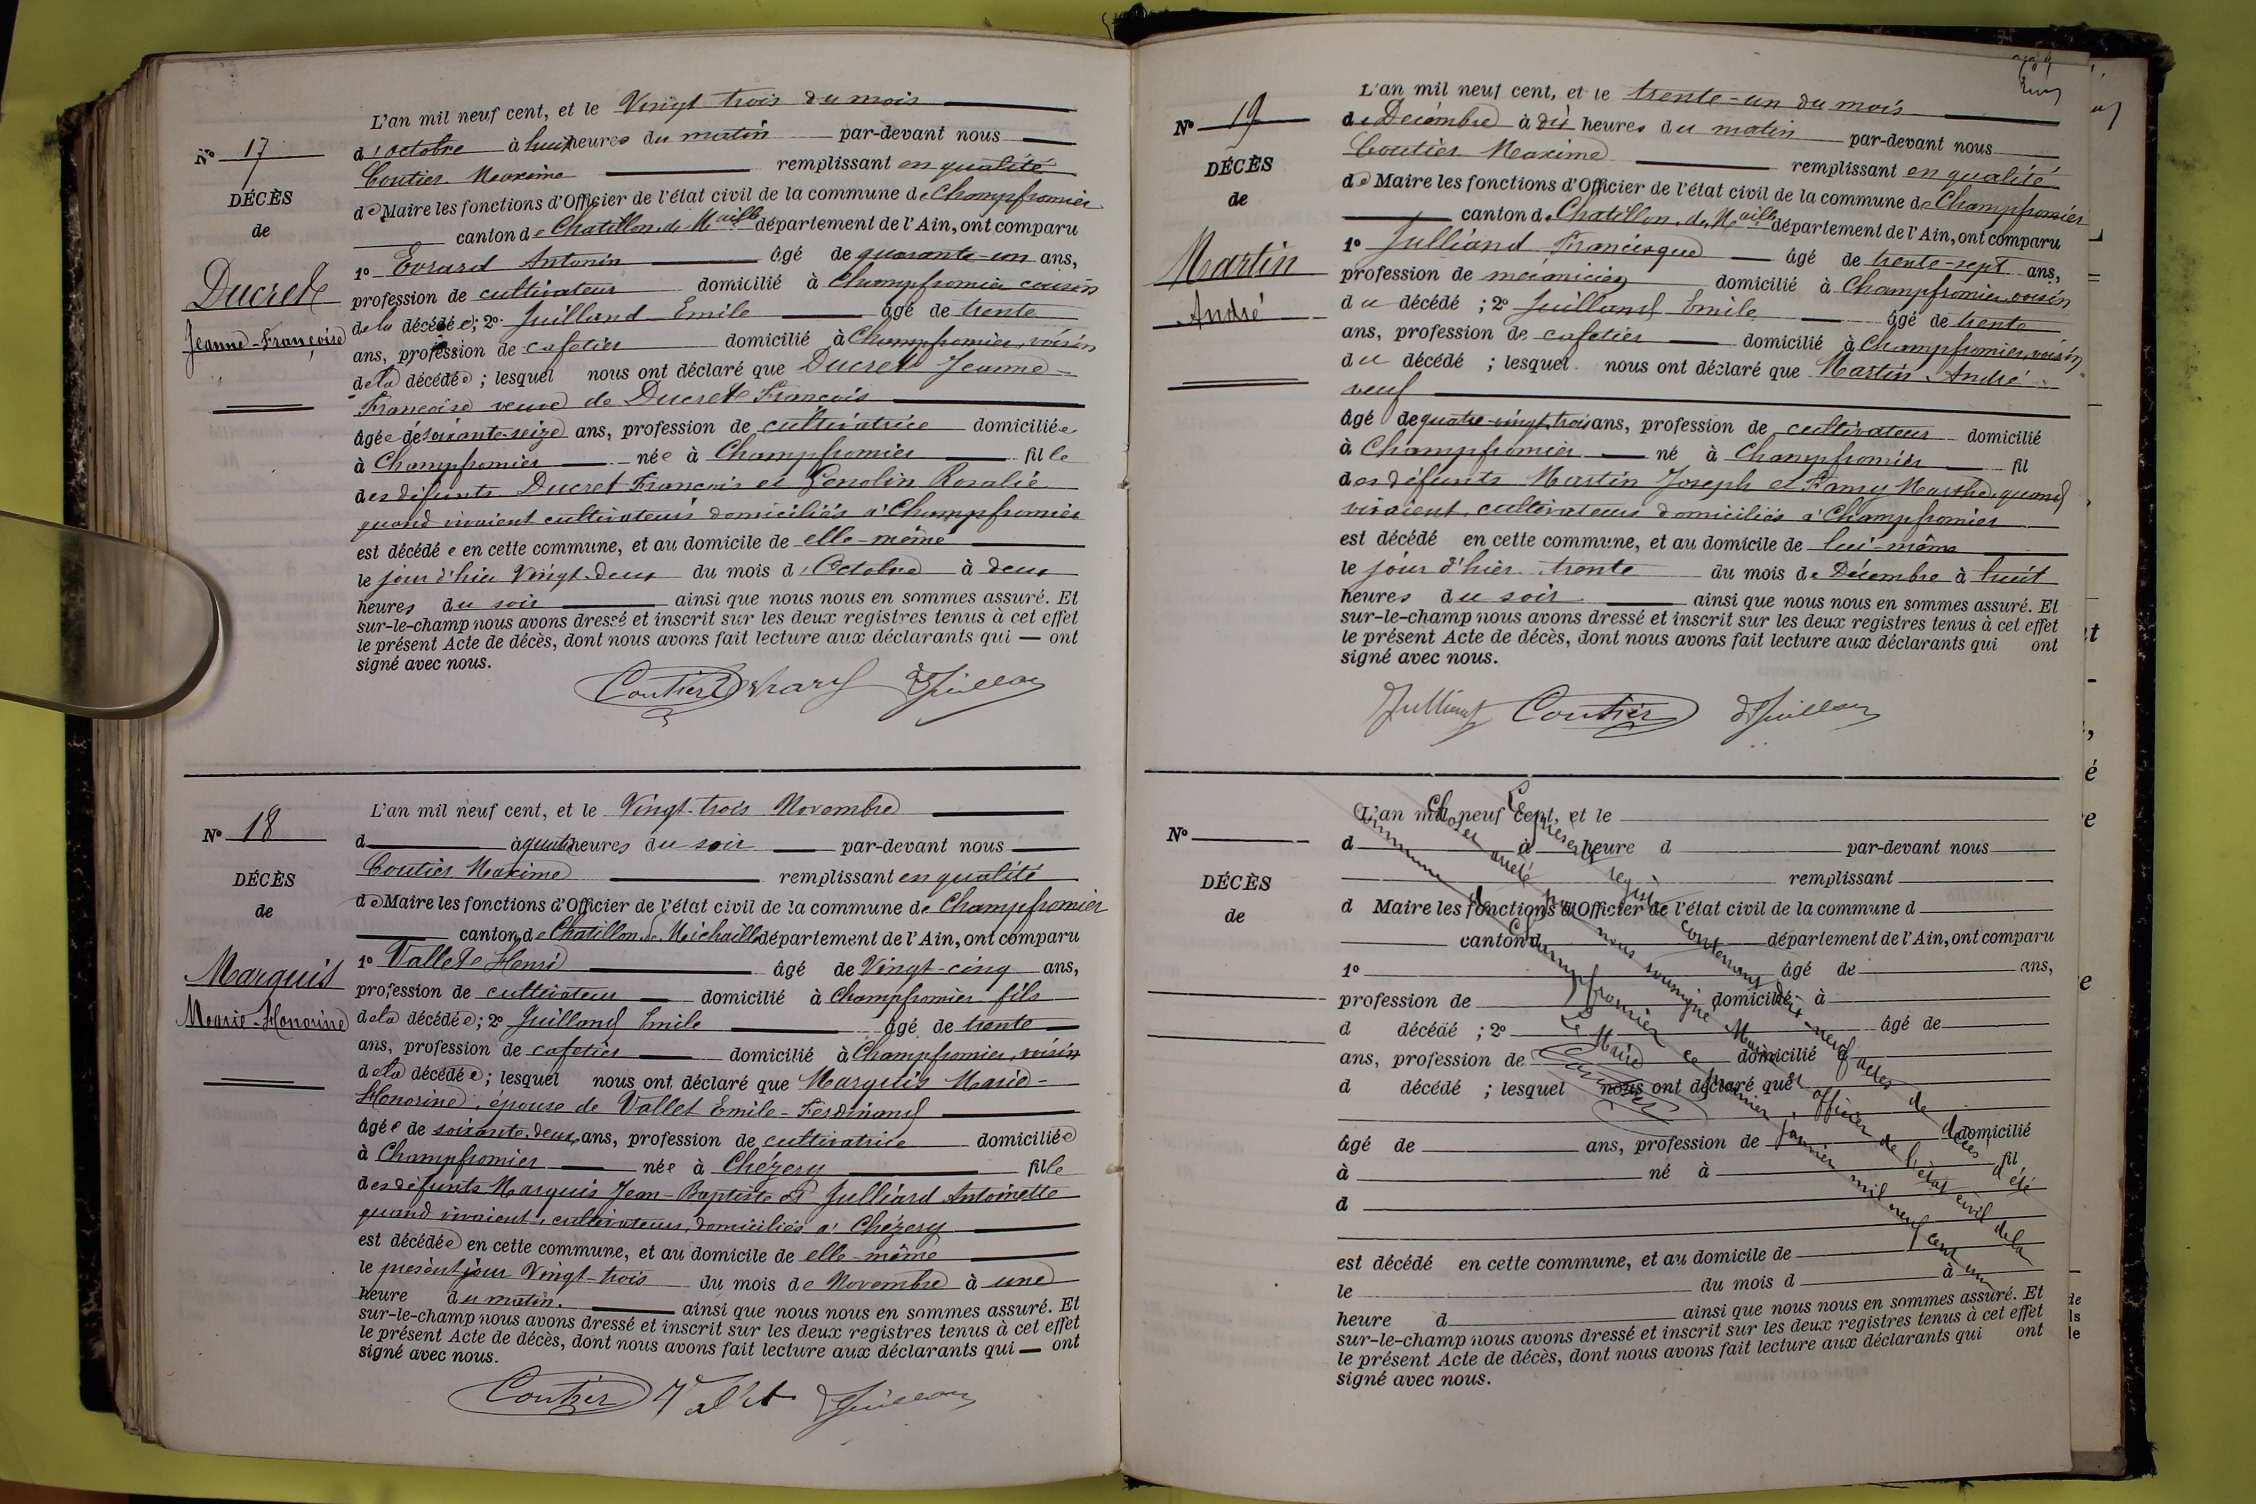 L'an mil neuf cent, et le Vingt trois du mois
N° 17
d'octobre à huit heures du matin par-devant nous
Coutier Maxime remplissant en qualité
DÉCÈS
de Maire les fonctions d'Officier de l'état civil de la commune de Champfromier
de
canton de Chatillon de Maille département de l'Ain, ont comparu
1° Evrard Antonin âgé de quarante-un ans,
Ducret
profession de cultivateur domicilié à Champfromier cousin
de la décédée ; 2° Juilland Emile âgé de trente
Jeanne-Françoise
ans, profession de cafetier domicilié à Champfromier, voisin
de la décédée ; lesquel nous ont déclaré que Ducret Jeanne-
Françoise veuve de Ducret François
âgée de soixante-seize ans, profession de cultivatrice domiciliée
à Champfromier née à Champfromier fille
des défunts Ducret François et Genolin Rosalie
quand vivaient cultivateurs domiciliés à Champfromier
est décédée en cette commune, et au domicile de elle-même
le jour d'hier Vingt-deux du mois d'Octobre à deux
heures du soir ainsi que nous nous en sommes assuré. Et
sur-le-champ nous avons dressé et inscrit sur les deux registres tenus à cet effet
le présent Acte de décès, dont nous avons fait lecture aux déclarants qui — ont
signé avec nous.
Coutier Evrard Juilland
L'an mil neuf cent, et le Vingt-trois Novembre
N° 18
d à quatre heures du soir par-devant nous
Coutier Maxime remplissant en qualité
DÉCÈS
de Maire les fonctions d'Officier de l'état civil de la commune de Champfromier
de
canton de Chatillon de Michaille département de l'Ain, ont comparu
1° Vallet Henri âgé de Vingt-cinq ans,
Marquis
profession de cultivateur domicilié à Champfromier fils
Marie-Honorine
de la décédée ; 2° Juilland Emile âgé de trente
ans, profession de cafetier domicilié à Champfromier, voisin
de la décédée ; lesquel nous ont déclaré que Marquis Marie-
Honorine, épouse de Vallet Emile-Ferdinand
âgée de soixante-deux ans, profession de cultivatrice domiciliée
à Champfromier née à Chézery fille
des défunts Marquis Jean-Baptiste et Julliard Antoinette
quand vivaient, cultivateurs, domiciliés à Chézery
est décédée en cette commune, et au domicile de elle-même
le présent jour Vingt-trois du mois de Novembre à une
heure du matin. ainsi que nous nous en sommes assuré. Et
sur-le-champ nous avons dressé et inscrit sur les deux registres tenus à cet effet
le présent Acte de décès, dont nous avons fait lecture aux déclarants qui — ont
signé avec nous.
Coutier Vallet Juilland
L'an mil neuf cent, et le trente-un du mois
N° 19
de Décembre à dix heures du matin par-devant nous
Coutier Maxime remplissant en qualité
DÉCÈS
de Maire les fonctions d'Officier de l'état civil de la commune de Champfromier
de
canton de Chatillon de Maille département de l'Ain, ont comparu
1° Julliand Francisque âgé de trente-sept ans,
Martin
profession de mécanicien domicilié à Champfromier voisin
André
du décédé ; 2° Juilland Emile âgé de trente
ans, profession de cafetier domicilié à Champfromier, voisin
du décédé ; lesquel nous ont déclaré que Martin André
veuf
âgé de quatre-vingt-trois ans, profession de cultivateur domicilié
à Champfromier né à Champfromier fil
des défunts Martin Joseph et Famy Marthe, quand
vivaient, cultivateurs domiciliés à Champfromier
est décédé en cette commune, et au domicile de lui-même
le jour d'hier trente du mois de Décembre à huit
heures du soir ainsi que nous nous en sommes assuré. Et
sur-le-champ nous avons dressé et inscrit sur les deux registres tenus à cet effet
le présent Acte de décès, dont nous avons fait lecture aux déclarants qui ont
signé avec nous.
Julliand Coutier Juilland
L'an mil neuf cent, et le
N°
d à heure d par-devant nous
remplissant
DÉCÈS
d Maire les fonctions d'Officier de l'état civil de la commune d
de
canton d département de l'Ain, ont comparu
1° âgé de ans,
profession de domicilié à
d décédé ; 2° âgé de
ans, profession de domicilié à
d décédé ; lesquel nous ont déclaré que
âgé de ans, profession de domicilié
à né à fil
d
est décédé en cette commune, et au domicile de
le du mois d à
heure d ainsi que nous nous en sommes assuré. Et
sur-le-champ nous avons dressé et inscrit sur les deux registres tenus à cet effet
le présent Acte de décès, dont nous avons fait lecture aux déclarants qui ont
signé avec nous.
Le présent registre contenant dix-neuf actes de décès a été
clos et arrêté par nous soussigné Maire et officier de l'état civil de la
commune de Champfromier ce premier janvier mil neuf cent un
Le Maire
Coutier